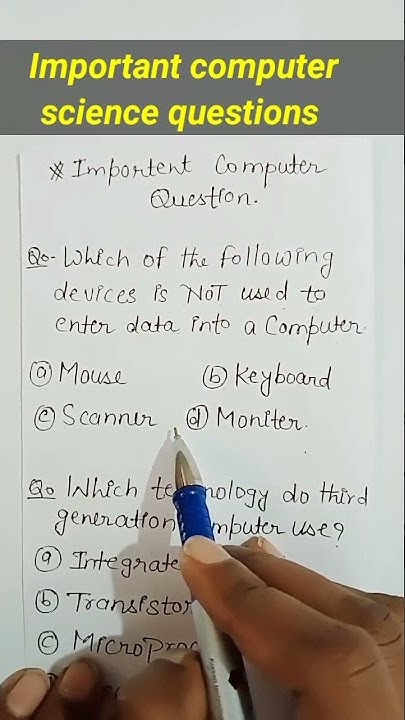 Important computer
science questions
* Importent Computer
Question.
Qo- Which of the following
devices is NOT used to
enter data into a Computer.
(a) Mouse (b) Keyboard
(c) Scanner (d) Moniter.
Qo Which do third
generation use?
(a)
(b) Transistor
(c)